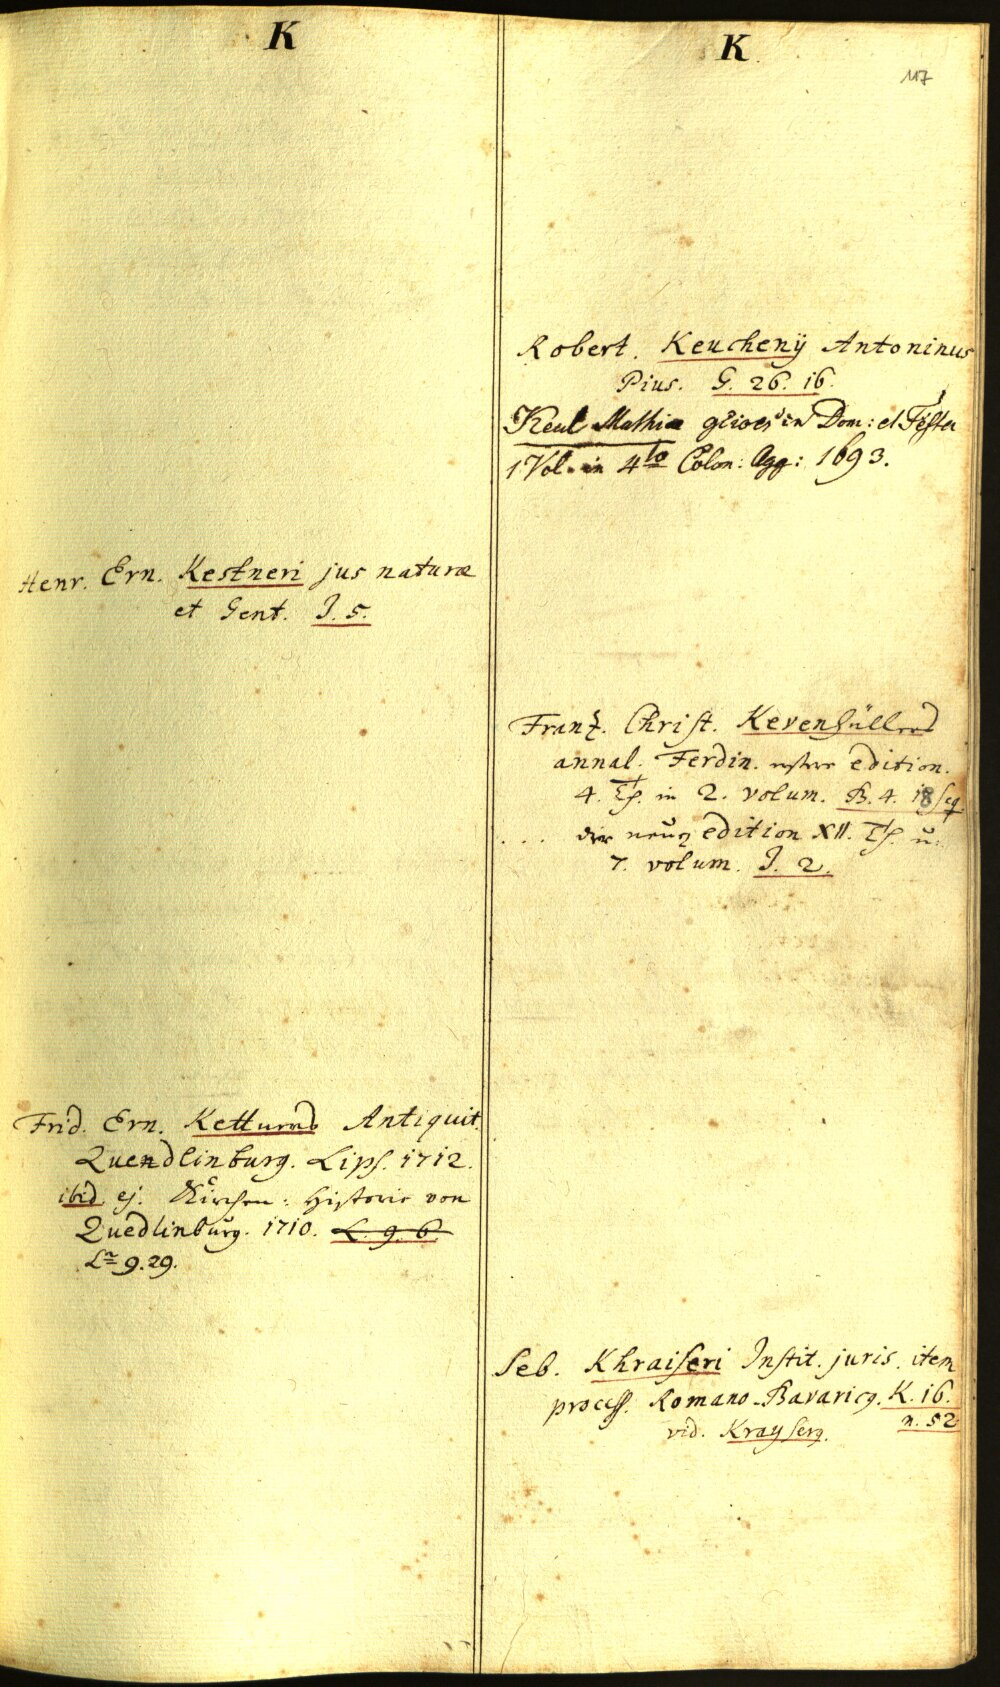 K
Henr. Ern. Kestneri jus naturæ
et Gent. J. 5.
Frid. Ern. Kettners Antiquit.
Quendlinburg. Lips. 1712.
ibid. ej. Kirchen: Historie von
Quedlinbŭrg. 1710. L. 9. 6
La 9. 29.
K.
117
Robert. Keuchenÿ Antoninus
Pius. G. 26. 16.
Keul Mathiæ in Dom: et Festa
1 Vol. in 4to Colon: Agg: 1693.
Frantz. Christ. Kevenhüllers
annal. Ferdin. erster edition.
4. Th. in 2. volum. B. 4. 18 seq.
... der neŭen edition XII. Th. ŭ.
7. volum. J. 2.
Seb. Khraiseri Instit. juris. item
process. Romano-Bavaricq. K. 16.
n. 52
vid. Krayserq.